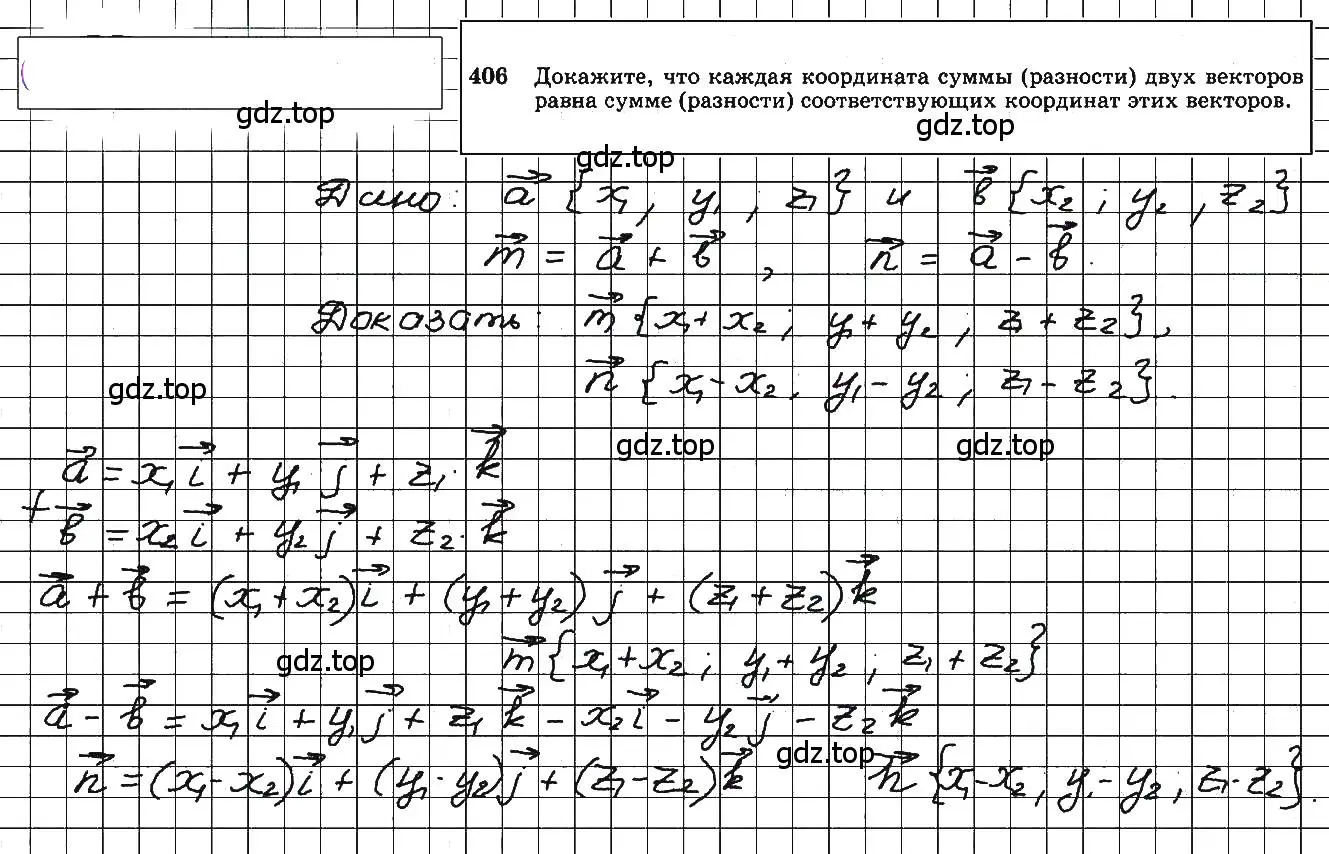 406 Докажите, что каждая координата суммы (разности) двух векторов
равна сумме (разности) соответствующих координат этих векторов.
gdz.top gdz.top
gdz.top
Дано: a⃗ {x₁, y₁, z₁} и b⃗ {x₂; y₂, z₂}
m⃗ = a⃗ + b⃗, n⃗ = a⃗ - b⃗.
Доказать: m⃗ {x₁+x₂; y₁+y₂, z₁+z₂},
n⃗ {x₁-x₂. y₁-y₂; z₁-z₂}.
gdz.top
gdz.top gdz.top
a⃗ = x₁i⃗ + y₁j⃗ + z₁·k⃗
+ b⃗ = x₂i⃗ + y₂j⃗ + z₂·k⃗
a⃗ + b⃗ = (x₁+x₂)i⃗ + (y₁+y₂)j⃗ + (z₁+z₂)k⃗
gdz.top m⃗ {x₁+x₂; y₁+y₂; z₁+z₂}
a⃗ - b⃗ = x₁i⃗ + y₁j⃗ + z₁k⃗ - x₂i⃗ - y₂j⃗ - z₂k⃗
gdz.top
n⃗ = (x₁-x₂)i⃗ + (y₁-y₂)j⃗ + (z₁-z₂)k⃗ n⃗ {x₁-x₂, y₁-y₂, z₁-z₂}.